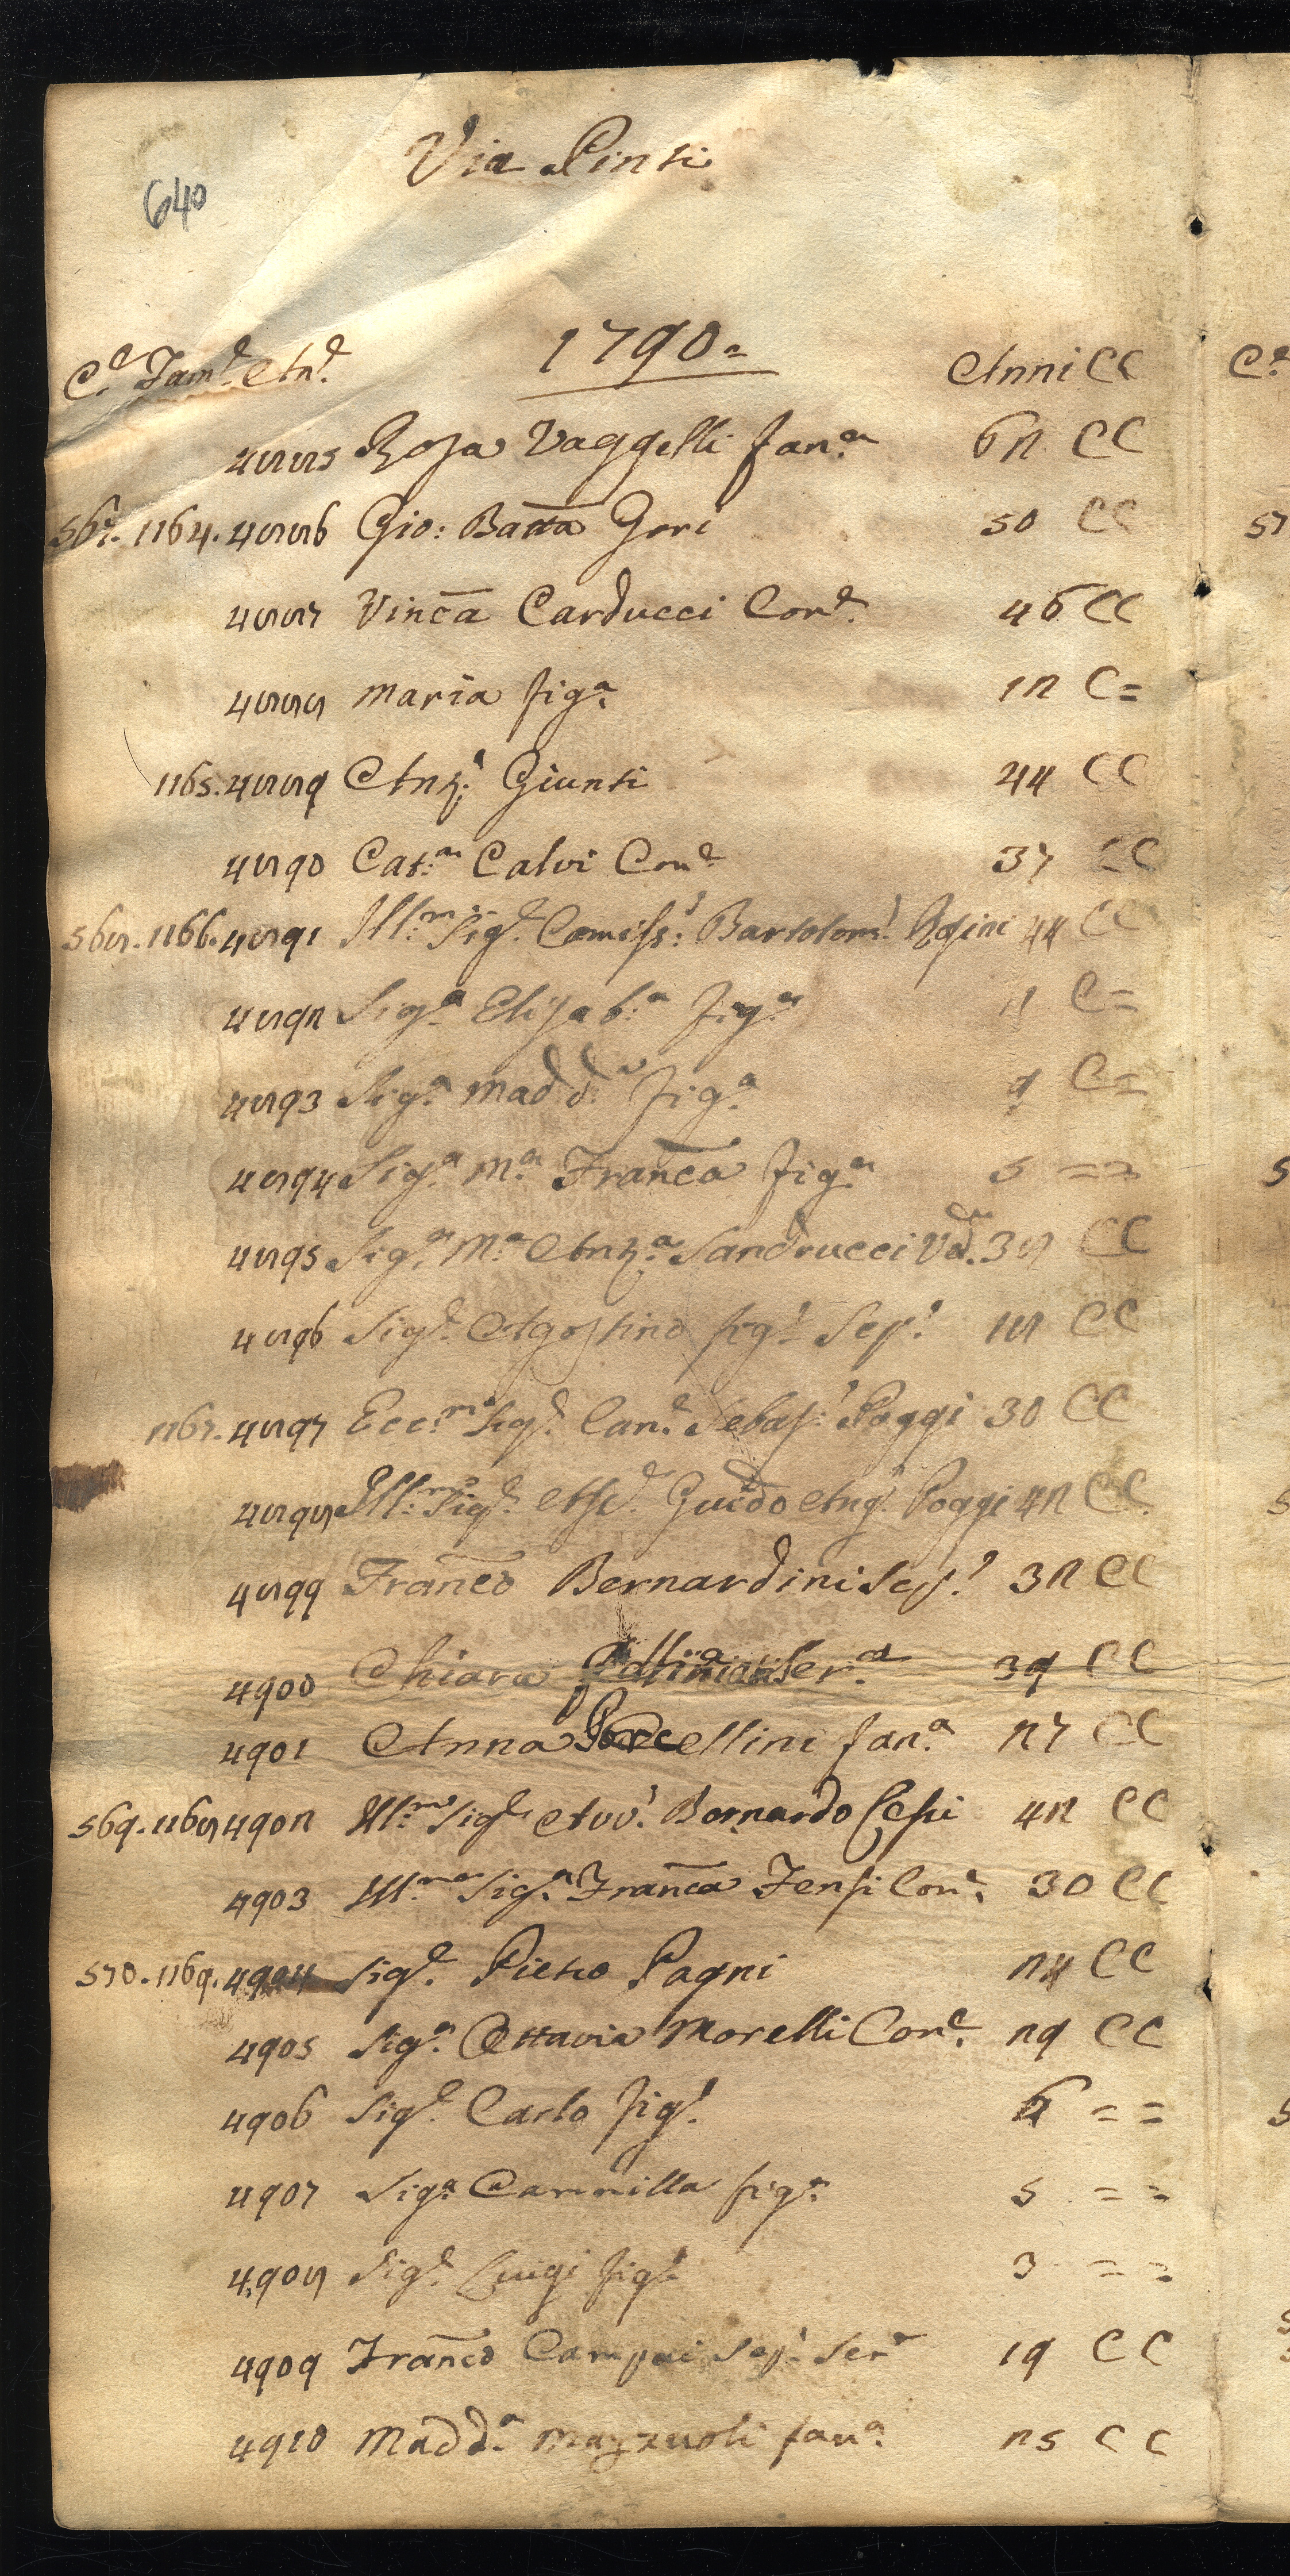 Via Pinti
640
1790=
C.e Fam.e An.e Anni CC
4885 Rosa Vaggelli fan.a 62 CC
567. 1164. 4886 Gio: Batta Gori 50 CC
4887 Vinca Carducci Con.e 46 CC
4888 Maria fig.a 12 C=
1165. 4889 Ant.o Giunti 44 CC
4890 Cat.a Calvi Con.e 37 CC
568. 1166. 4891 Ill.mo Sig.e Comiss.o Bartolom.o 44 CC
4892 Sig.a Elisab.a fig.a 11 C=
4893 Sig.a Madd.a fig.a 9 C=
4894 Sig.a M.a Franca fig.a 5 ==
4895 Sig.a M.a Ant.a Sandrucci Vd.a 38 CC
4896 Sig.e Agostino fig.o Sep.o 18 CC
1167. 4897 Ecc.mo Sig.e Can.e Sebas.o Poggi 30 CC
4898 Ill.mo Sig.e Guido Ang.o Poggi 42 CC
4899 Franco Bernardini Sep.o 32 CC
4900 Chiara Ser.a 39 CC
4901 Anna Porcellini fan.a 27 CC
569. 1168 4902 Ill.mo Sig.e Avv.o Bernardo Lessi 42 CC
4903 Ill.ma Sig.a Franca Fensi Con.e 30 CC
570. 1169. 4904 Sig.e Pietro Pagni 24 CC
4905 Sig.a Ottavia Morelli Con.e 29 CC
4906 Sig.e Carlo fig.o 6 ==
4907 Sig.a Cammilla fig.a 5 ==
4908 Sig.e Luigi fig.o 3 ==
4909 Franco Campai Sep.o Ser.e 19 CC
4910 Madd.a Mazzuoli fan.a 25 CC